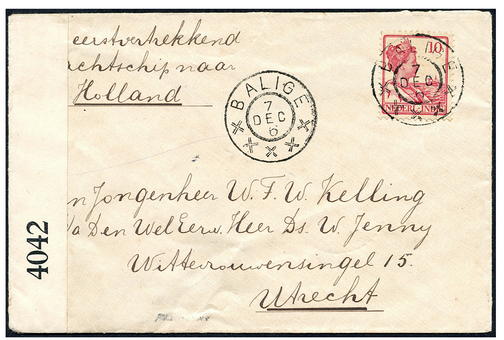 eerstvertrekkend
achtschip naar
Holland
BALIGE
7
DEC
6
10
7
DEC
NEDERL INDIË
n Jongenheer W. F. W. Kelling
a Den WelEerw. Heer Ds. W. Jenny
Wittevrouwensingel 15.
Utrecht
4042